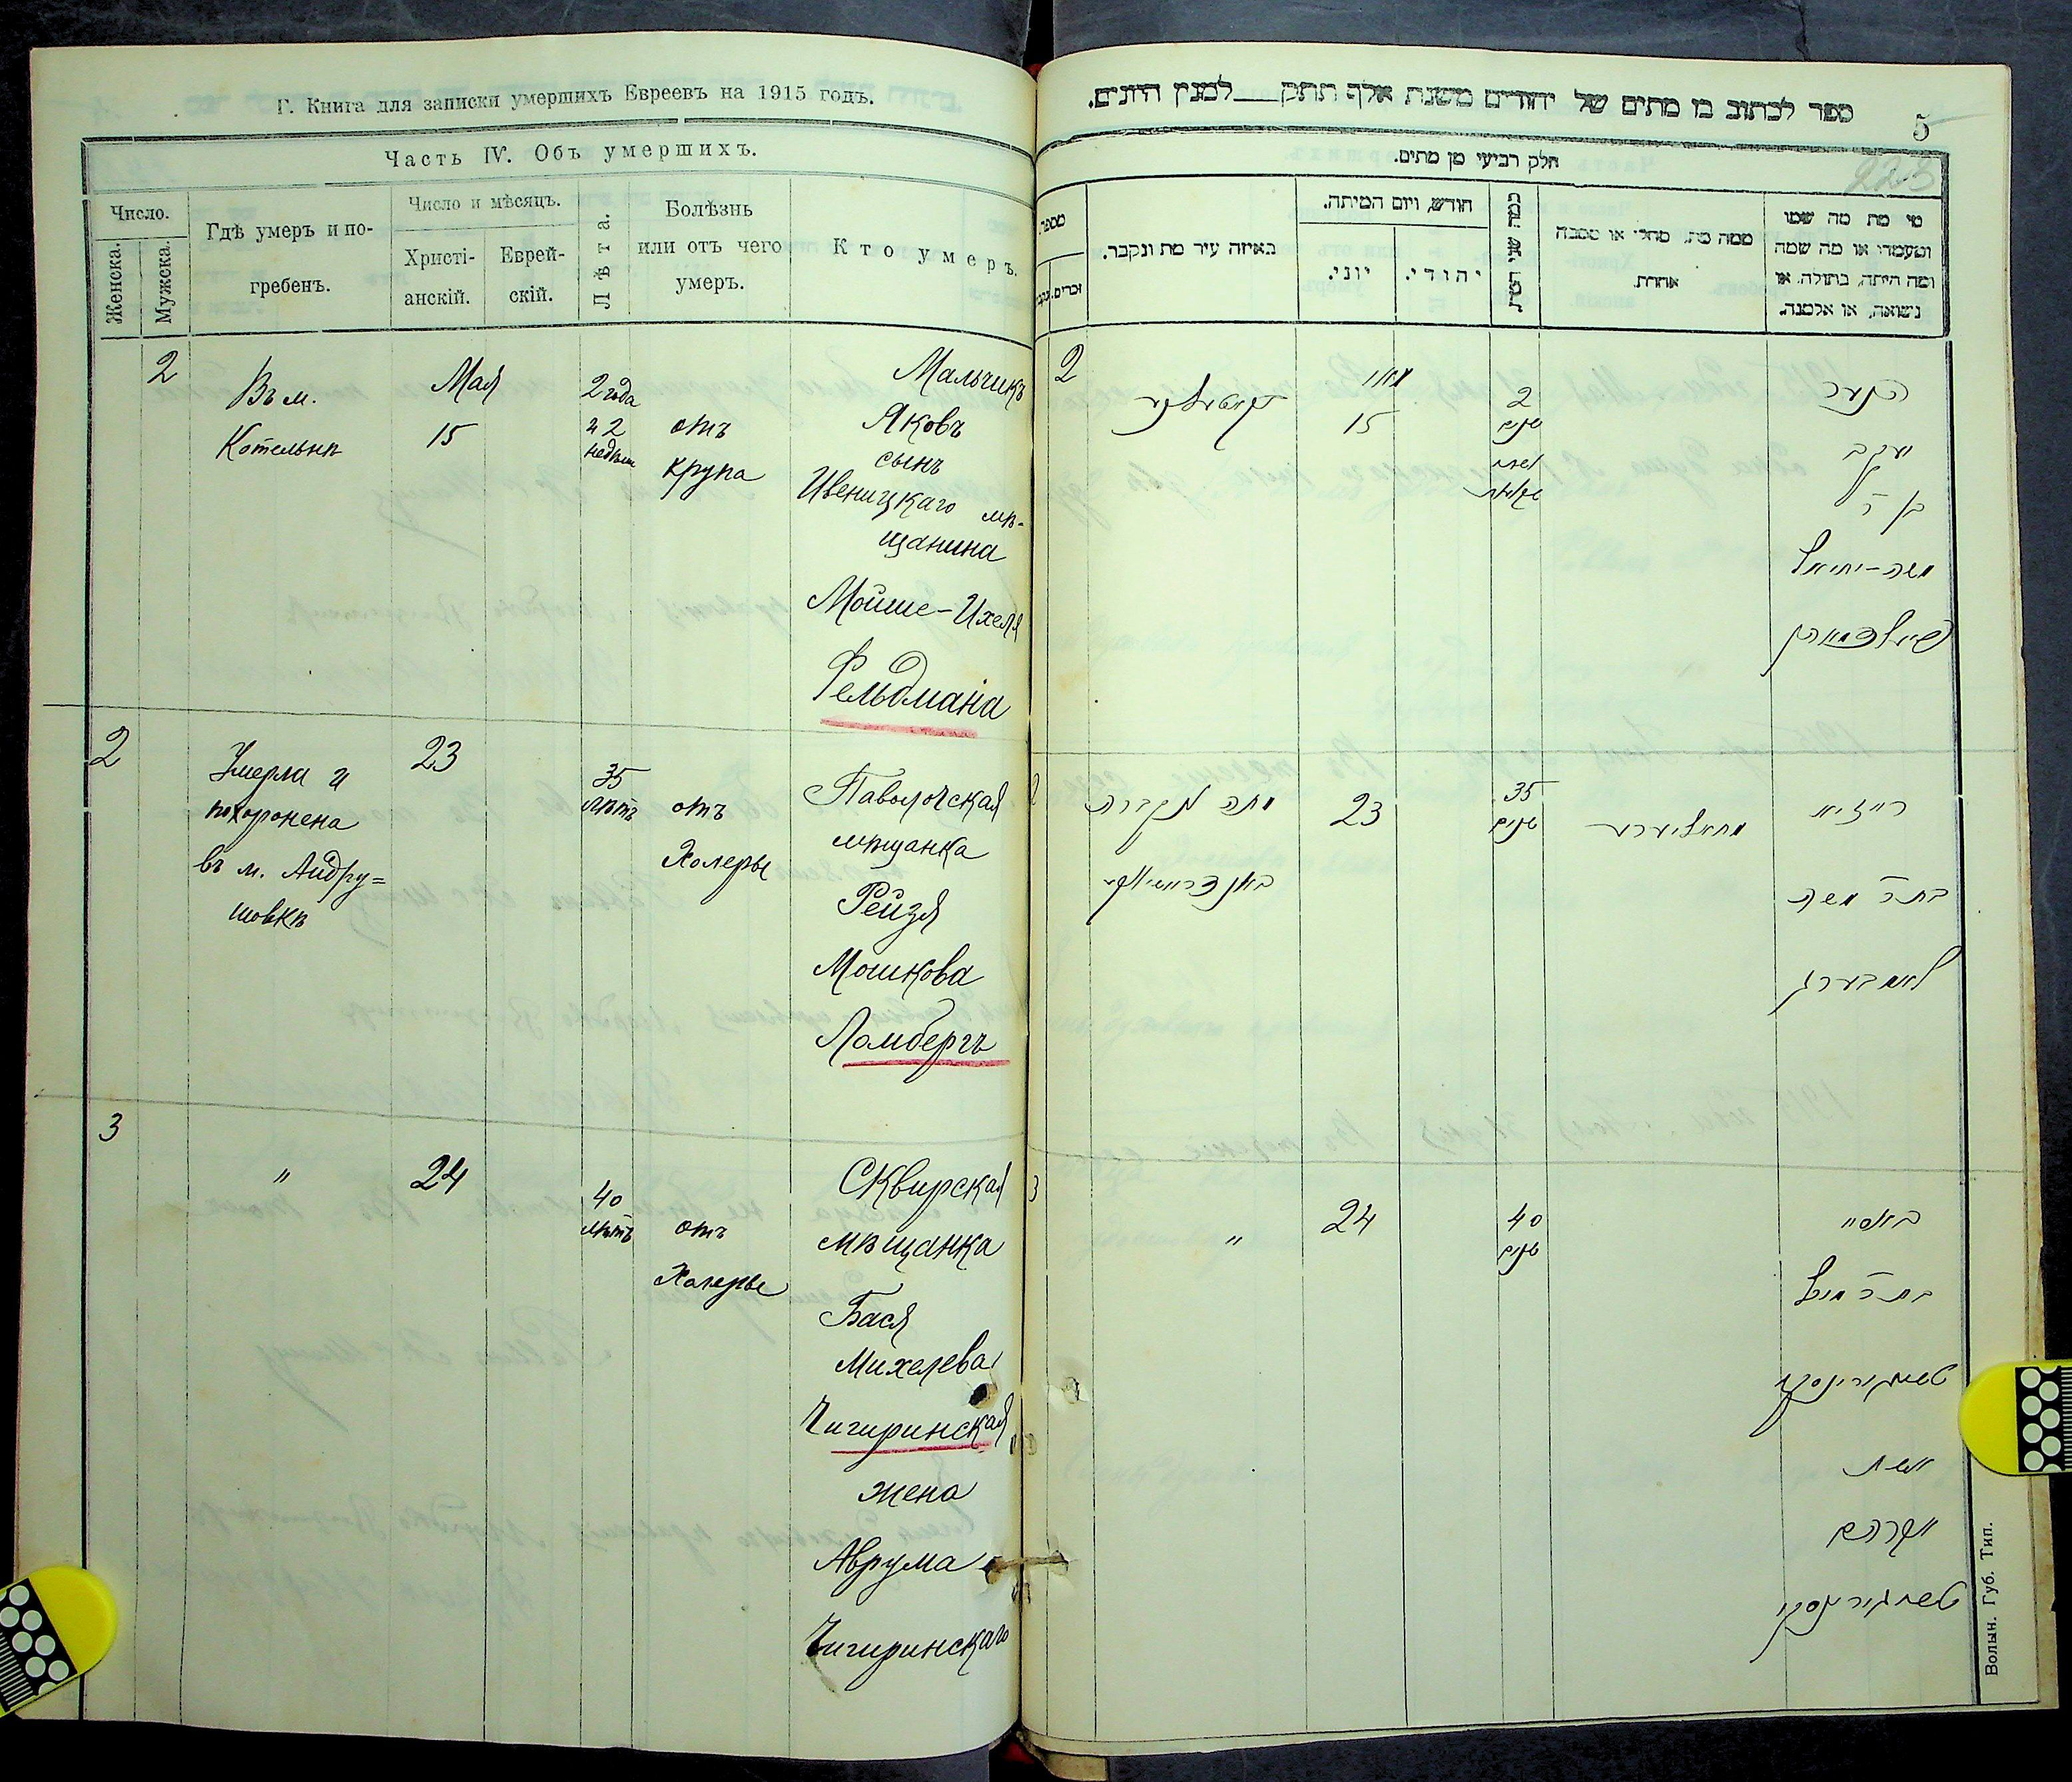 Г. Книга для записки умершихъ Евреевъ на 1915 годъ.
Часть IV. Объ умершихъ.
Число.
Женска.
Мужска.
Гдѣ умеръ и по-
гребенъ.
Число и мѣсяцъ.
Христі-
анскій.
Еврей-
скій.
Лѣта.
Болѣзнь
или отъ чего
умеръ.
Кто умеръ.
2
Въ м.
Котельнѣ
Мая
15
2 года
и 2
недѣли
отъ
крупа
Мальчикъ
Яковъ
сынъ
Ивеницкаго мѣ-
щанина
Мойше-Ихеля
Фельдмана
2
Умерла и
похоронена
въ м. Андру=
шовкѣ
23
35
лѣтъ
отъ
Холеры
Паволочская
мѣщанка
Рейзя
Мошкова
Ламбергъ
3
"
24
40
лѣтъ
отъ
Холеры
Сквирская
мѣщанка
Бася
Михелева
Чигиринская
жена
Аврума
Чигиринскаго
ספר לכתוב בו מתים של יהודים משנת אלף תתק למנין היונים.
5
223
חלק רביעי מן מתים.
מספר
זכרים.
באיזה עיר מת ונקבר.
חודש, ויום המיתה.
יוני.
יהודי.
כמה שני המת
ממה מת, מחלי או מסבה
אחרת
מי מת מה שמו
ומעמדו או מה שמה
ומה היתה, בתולה, או
נשואה, או אלמנה.
2
מאי
15
2
שנים
ושני
שבועות
הנער
יעקב
בן ר'
משה-יחיאל
פעלדמאן
2
מתה ונקברה
באנדרושיווקע
23
35
שנים
מחאלירע
רייזיא
בת ר' משה
לאמבערג
3
"
24
40
שנים
באסיי
בת ר' מיכל
טשיגירינסקי
אשת
אברהם
טשיגירינסקי
Волын. Губ. Тип.